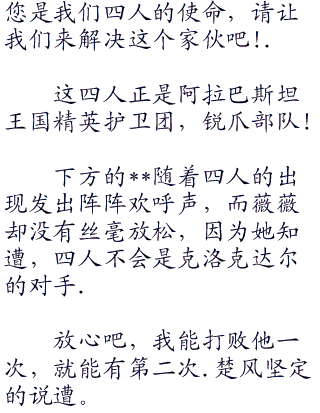 您是我们四人的使命，请让
我们来解决这个家伙吧！.
这四人正是阿拉巴斯坦
王国精英护卫团，锐爪部队！
下方的**随着四人的出
现发出阵阵欢呼声，而薇薇
却没有丝毫放松，因为她知
遭，四人不会是克洛克达尔
的对手.
放心吧，我能打败他一
次，就能有第二次.楚风坚定
的说遭。